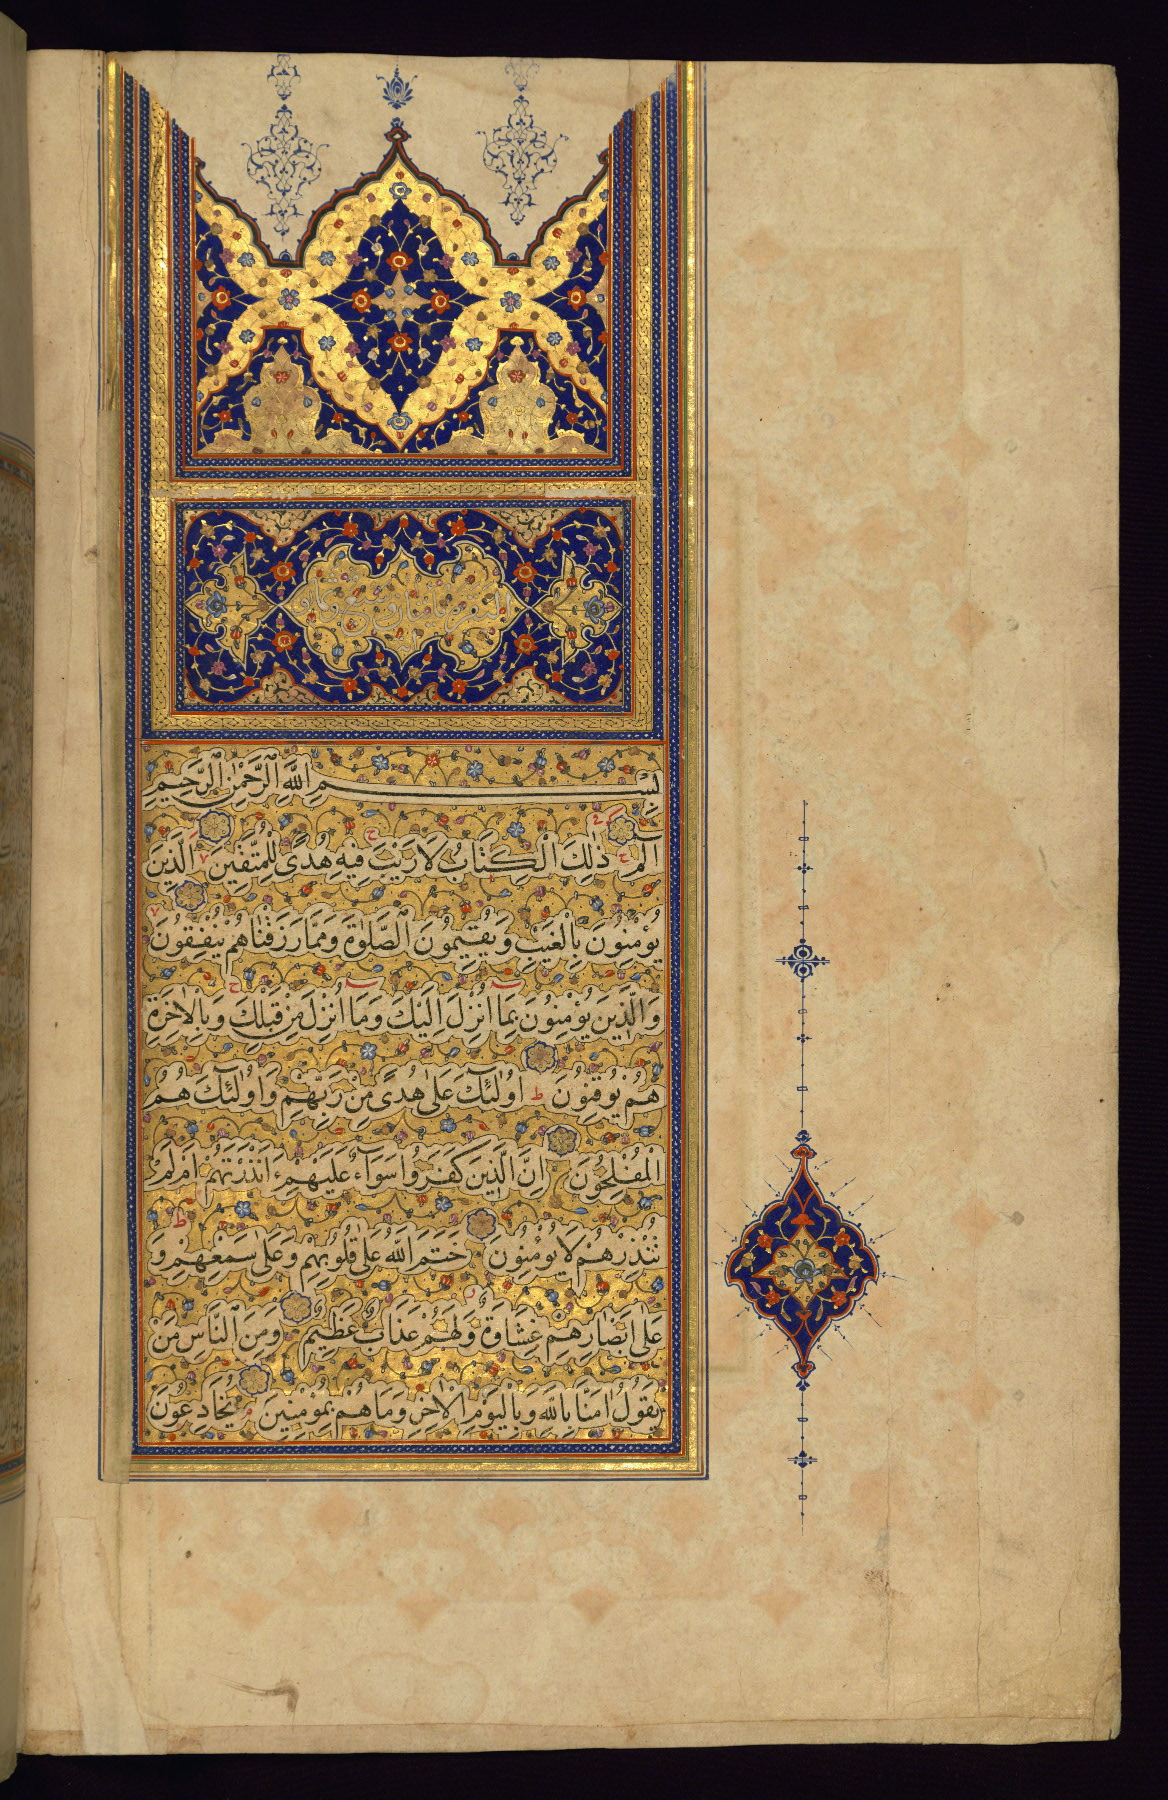 بِسْمِ اللَّهِ الرَّحْمٰنِ الرَّحِيمِ
الٓمٓ ذٰلِكَ الْكِتَابُ لَا رَيْبَ فِيهِ هُدًى لِلْمُتَّقِينَ الَّذِينَ
يُؤْمِنُونَ بِالْغَيْبِ وَيُقِيمُونَ الصَّلٰوةَ وَمِمَّا رَزَقْنَاهُمْ يُنْفِقُونَ
وَالَّذِينَ يُؤْمِنُونَ بِمَا اُنْزِلَ اِلَيْكَ وَمَا اُنْزِلَ مِنْ قَبْلِكَ وَبِالْاٰخِرَةِ
هُمْ يُوقِنُونَ اُولٰئِكَ عَلٰى هُدًى مِنْ رَبِّهِمْ وَاُولٰئِكَ هُمُ
الْمُفْلِحُونَ اِنَّ الَّذِينَ كَفَرُوا سَوَاءٌ عَلَيْهِمْ ءَاَنْذَرْتَهُمْ اَمْ لَمْ
تُنْذِرْهُمْ لَا يُؤْمِنُونَ خَتَمَ اللَّهُ عَلٰى قُلُوبِهِمْ وَعَلٰى سَمْعِهِمْ وَ
عَلٰى اَبْصَارِهِمْ غِشَاوَةٌ وَلَهُمْ عَذَابٌ عَظِيمٌ وَمِنَ النَّاسِ مَنْ
يَقُولُ اٰمَنَّا بِاللَّهِ وَبِالْيَوْمِ الْاٰخِرِ وَمَا هُمْ بِمُؤْمِنِينَ يُخَادِعُونَ